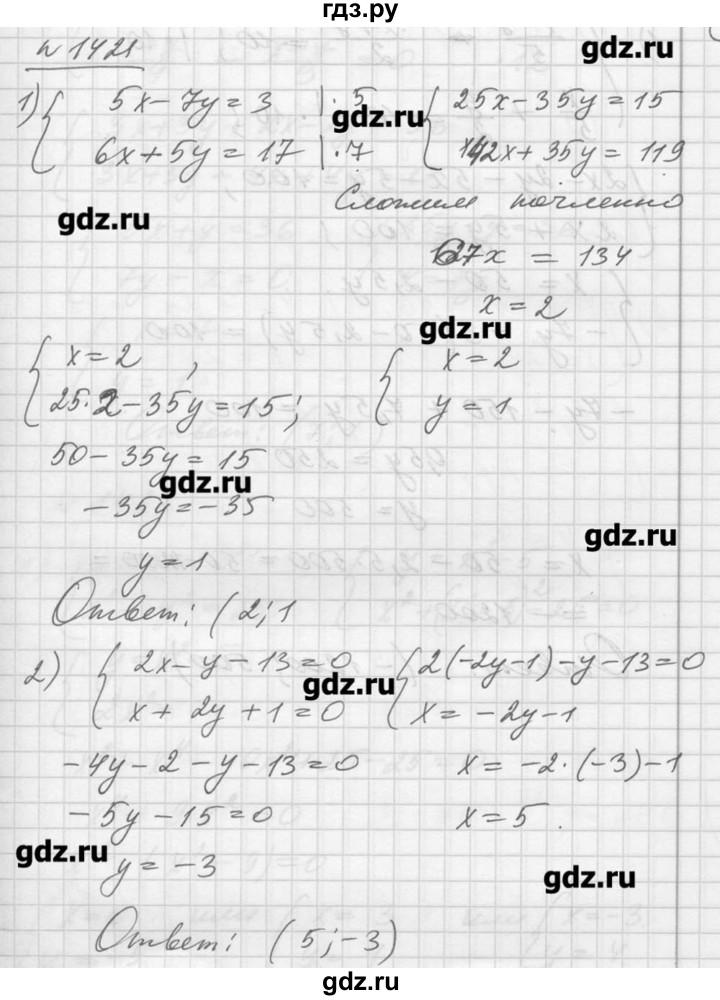 гдз.ру
n 1421
gdz.ru
1) { 5x - 7y = 3 | · 5 { 25x - 35y = 15
gdz.ru
6x + 5y = 17 | · 7 42x + 35y = 119
Сложим почленно
gdz.ru
67x = 134
x = 2
gdz.ru
{ x = 2 , { x = 2
25·2 - 35y = 15; y = 1
50 - 35y = 15
gdz.ru
-35y = -35
gdz.ru
y = 1
Ответ: (2; 1
2) { 2x - y - 13 = 0 { 2(-2y - 1) - y - 13 = 0
gdz.ru
x + 2y + 1 = 0 x = -2y - 1
-4y - 2 - y - 13 = 0 x = -2·(-3) - 1
-5y - 15 = 0 x = 5.
gdz.ru
y = -3
gdz.ru
Ответ: (5; -3)
gdz.ru